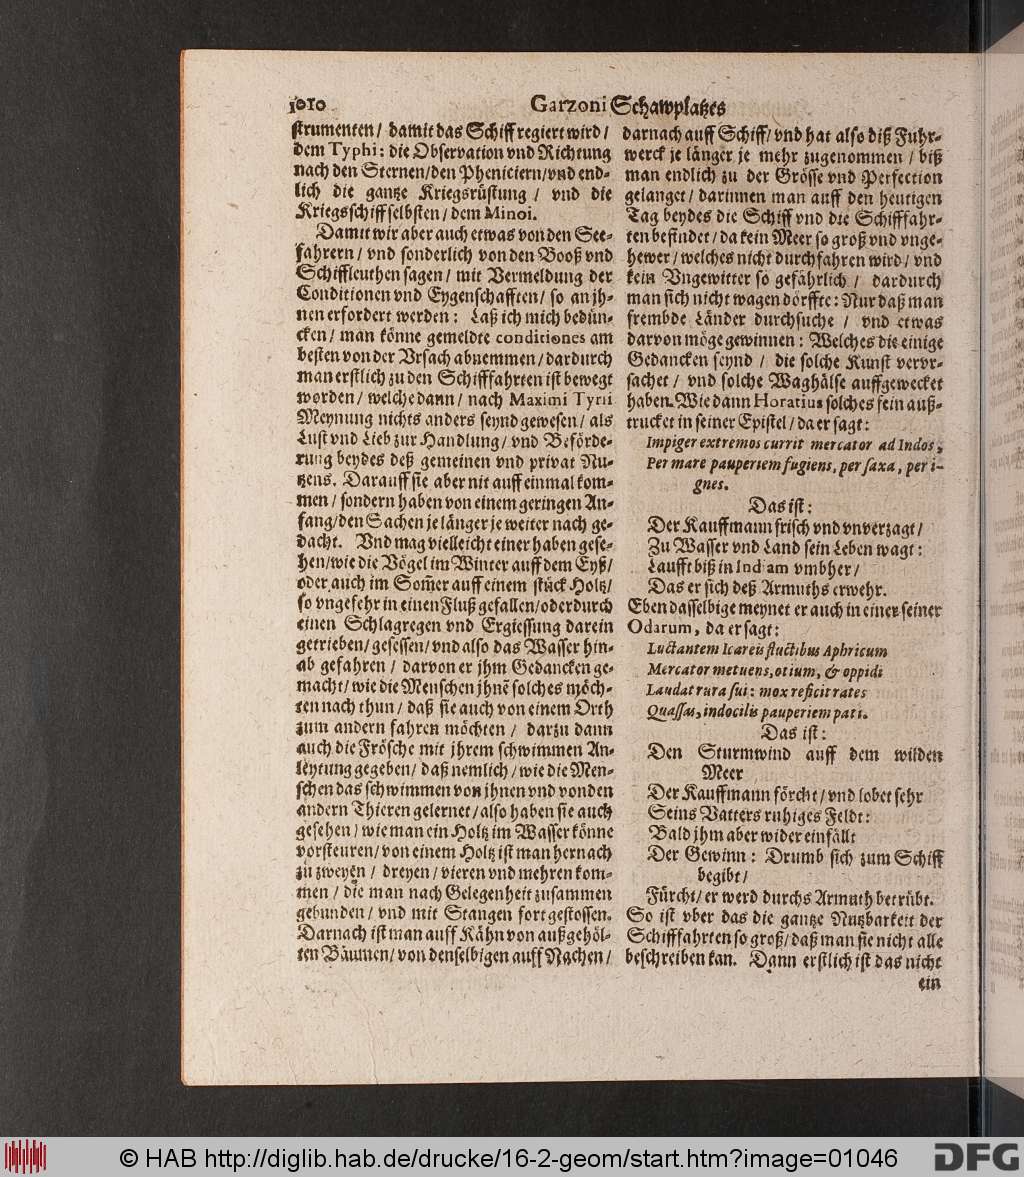 1010 Garzoni Schawplatzes
strumenten / damit das Schiff regiert wird /
dem Typhi: die Observation vnd Richtung
nach den Sternen / den Pheniciern / vnd end-
lich die gantze Kriegsrüstung / vnd die
Kriegsschiff selbsten / dem Minoi.
Damit wir aber auch etwas von den See-
fahrern / vnd sonderlich von den Booß vnd
Schiffleuthen sagen / mit Vermeldung der
Conditionen vnd Eygenschafften / so an jh-
nen erfordert werden: Laß ich mich bedün-
cken / man könne gemeldte conditiones am
besten von der Vrsach abnemmen / dardurch
man erstlich zu den Schifffahrten ist bewegt
worden / welche dann / nach Maximi Tyrii
Meynung nichts anders seynd gewesen / als
Lust vnd Lieb zur Handlung / vnd Beförde-
rung beydes deß gemeinen vnd privat Nu-
tzens. Darauff sie aber nit auff einmal kom-
men / sondern haben von einem geringen An-
fang / den Sachen je länger je weiter nach ge-
dacht. Vnd mag vielleicht einer haben gese-
hen / wie die Vögel im Winter auff dem Eyß /
oder auch im Som̄er auff einem stück Holtz /
so vngefehr in einen Fluß gefallen / oder durch
einen Schlagregen vnd Ergiessung darein
getrieben / gesessen / vnd also das Wasser hin-
ab gefahren / darvon er jhm Gedancken ge-
macht / wie die Menschen jhnē solches möch-
ten nach thun / daß sie auch von einem Orth
zum andern fahren möchten / darzu dann
auch die Frösche mit jhrem schwimmen An-
leytung gegeben / daß nemlich / wie die Men-
schen das schwimmen von jhnen vnd von den
andern Thieren gelernet / also haben sie auch
gesehen / wie man ein Holtz im Wasser könne
vorsteuren / von einem Holtz ist man hernach
zu zweyen / dreyen / vieren vnd mehren kom-
men / die man nach Gelegenheit zusammen
gebunden / vnd mit Stangen fortgestossen.
Darnach ist man auff Kähn von außgehöl-
ten Bäumen / von denselbigen auff Nachen /
darnach auff Schiff / vnd hat also diß Fuhr-
werck je länger je mehr zugenommen / biß
man endlich zu der Grösse vnd Perfection
gelanget / darinnen man auff den heutigen
Tag beydes die Schiff vnd die Schifffahr-
ten befindet / da kein Meer so groß vnd vnge-
hewer / welches nicht durchfahren wird / vnd
kein Vngewitter so gefährlich / dardurch
man sich nicht wagen dörffte: Nur daß man
frembde Länder durchsuche / vnd etwas
darvon möge gewinnen: Welches die einige
Gedancken seynd / die solche Kunst vervr-
sachet / vnd solche Waghälse auffgewecket
haben. Wie dann Horatius solches fein auß-
trucket in seiner Epistel / da er sagt:
Impiger extremos currit mercator ad Indos,
Per mare pauperiem fugiens, per saxa, per i-
gnes.
Das ist:
Der Kauffmann frisch vnd vnverzagt /
Zu Wasser vnd Land sein Leben wagt:
Laufft biß in Indiam vmbher /
Das er sich deß Armuths erwehr.
Eben dasselbige meynet er auch in einer seiner
Odarum, da er sagt:
Luctantem Icareis fluctibus Aphricum
Mercator metuens, otium, & oppidi
Laudat rura sui: mox reficit rates
Quassas, indocilis pauperiem pati.
Das ist:
Den Sturmwind auff dem wilden
Meer
Der Kauffmann förcht / vnd lobet sehr
Seins Vatters ruhiges Feldt:
Bald jhm aber wider einfällt
Der Gewinn: Drumb sich zum Schiff
begibt /
Fürcht / er werd durchs Armuth betrübt.
So ist vber das die gantze Nutzbarkeit der
Schifffahrten so groß / daß man sie nicht alle
beschreiben kan. Dann erstlich ist das nicht
ein
© HAB http://diglib.hab.de/drucke/16-2-geom/start.htm?image=01046
DFG